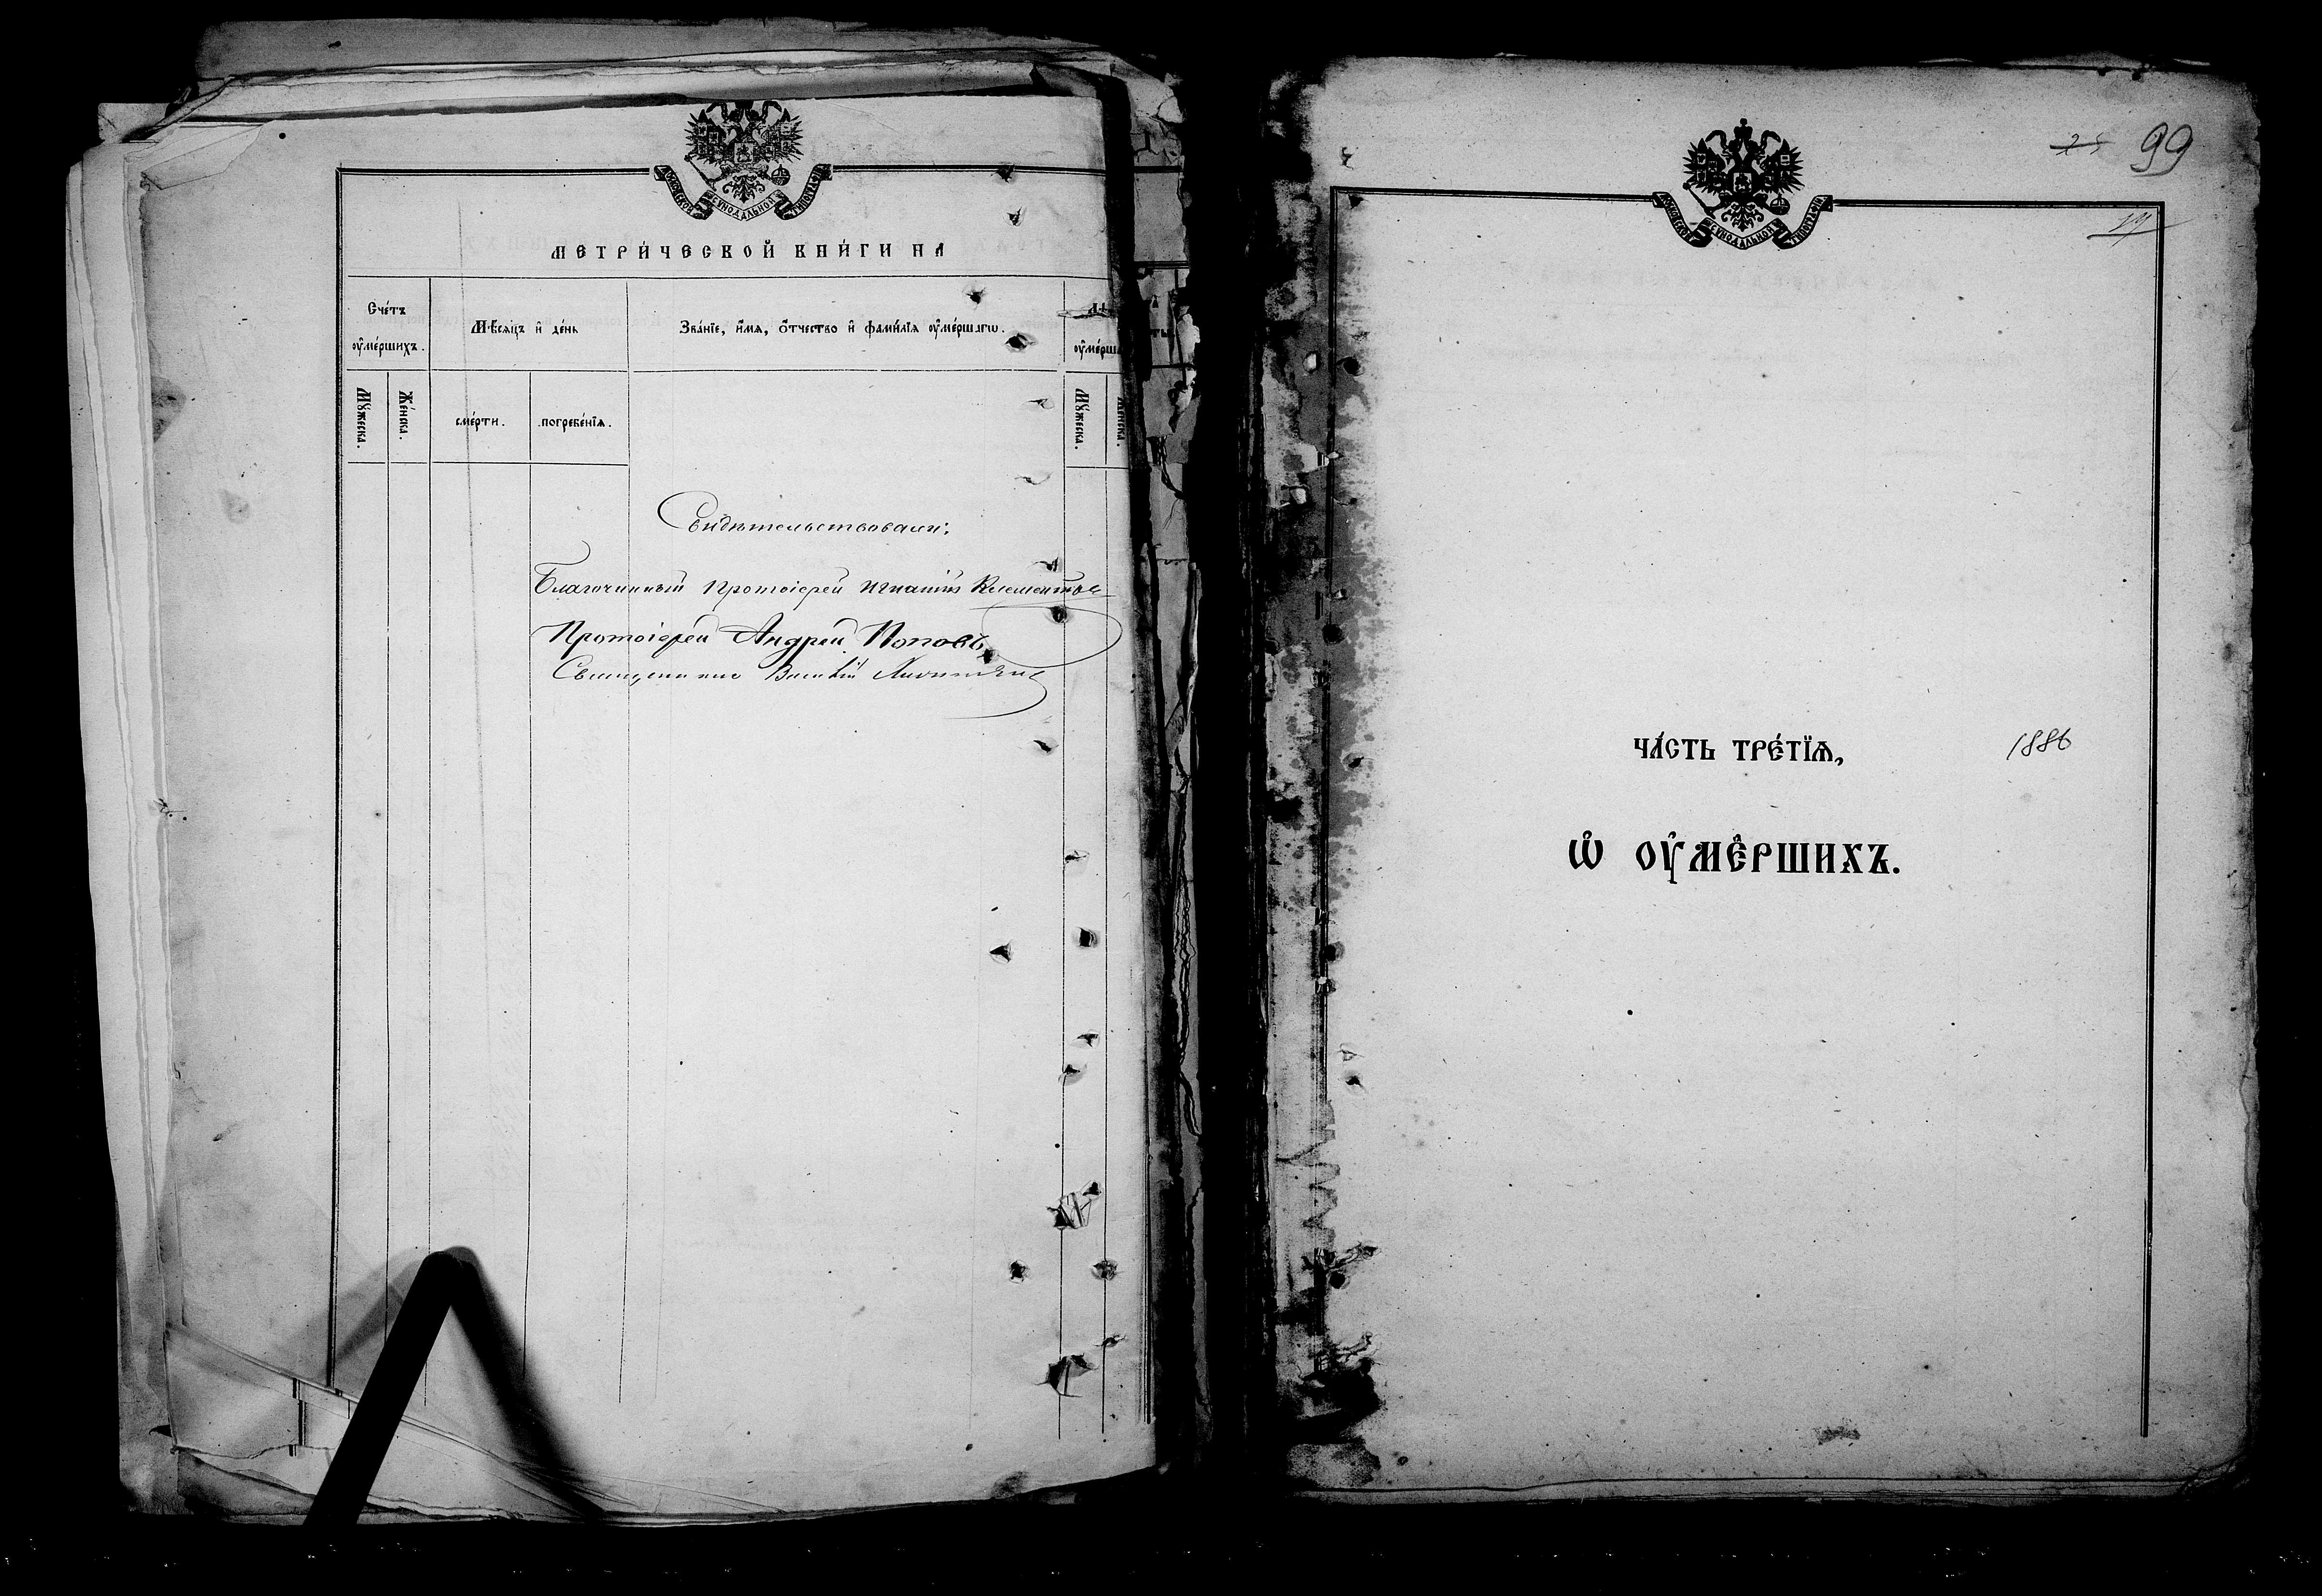 МОСКОВСКОЙ СѴНОДАЛЬНОЙ ТИПОГРАФІИ
МЕТРИ́ЧЕСКОЙ КНИ́ГИ НА
Сче́тъ
оу҆ме́ршихъ.
Мѣ́сяцъ и҆ де́нь
Зва́нїе, и҆́мѧ, ѻ҆́тчество и҆ фами́лїѧ оу҆ме́ршагѡ.
Лѣ
оу҆ме́рша
Мꙋ́жеска.
Же́нска.
сме́рти.
погребе́нїѧ.
Мꙋ́жеска.
Же́нска.
Свидѣтельствовали:
Благочинный Протоіерей Игнатій Клементов
Протоіерей Андрей Поповъ
Священникъ Василій
99
МОСКОВСКОЙ СѴНОДАЛЬНОЙ ТИПОГРАФІИ
ЧА́СТЬ ТРЕ́ТЇѦ,
1886
Ѡ҆ ОУ҆МЕ́РШИХЪ.